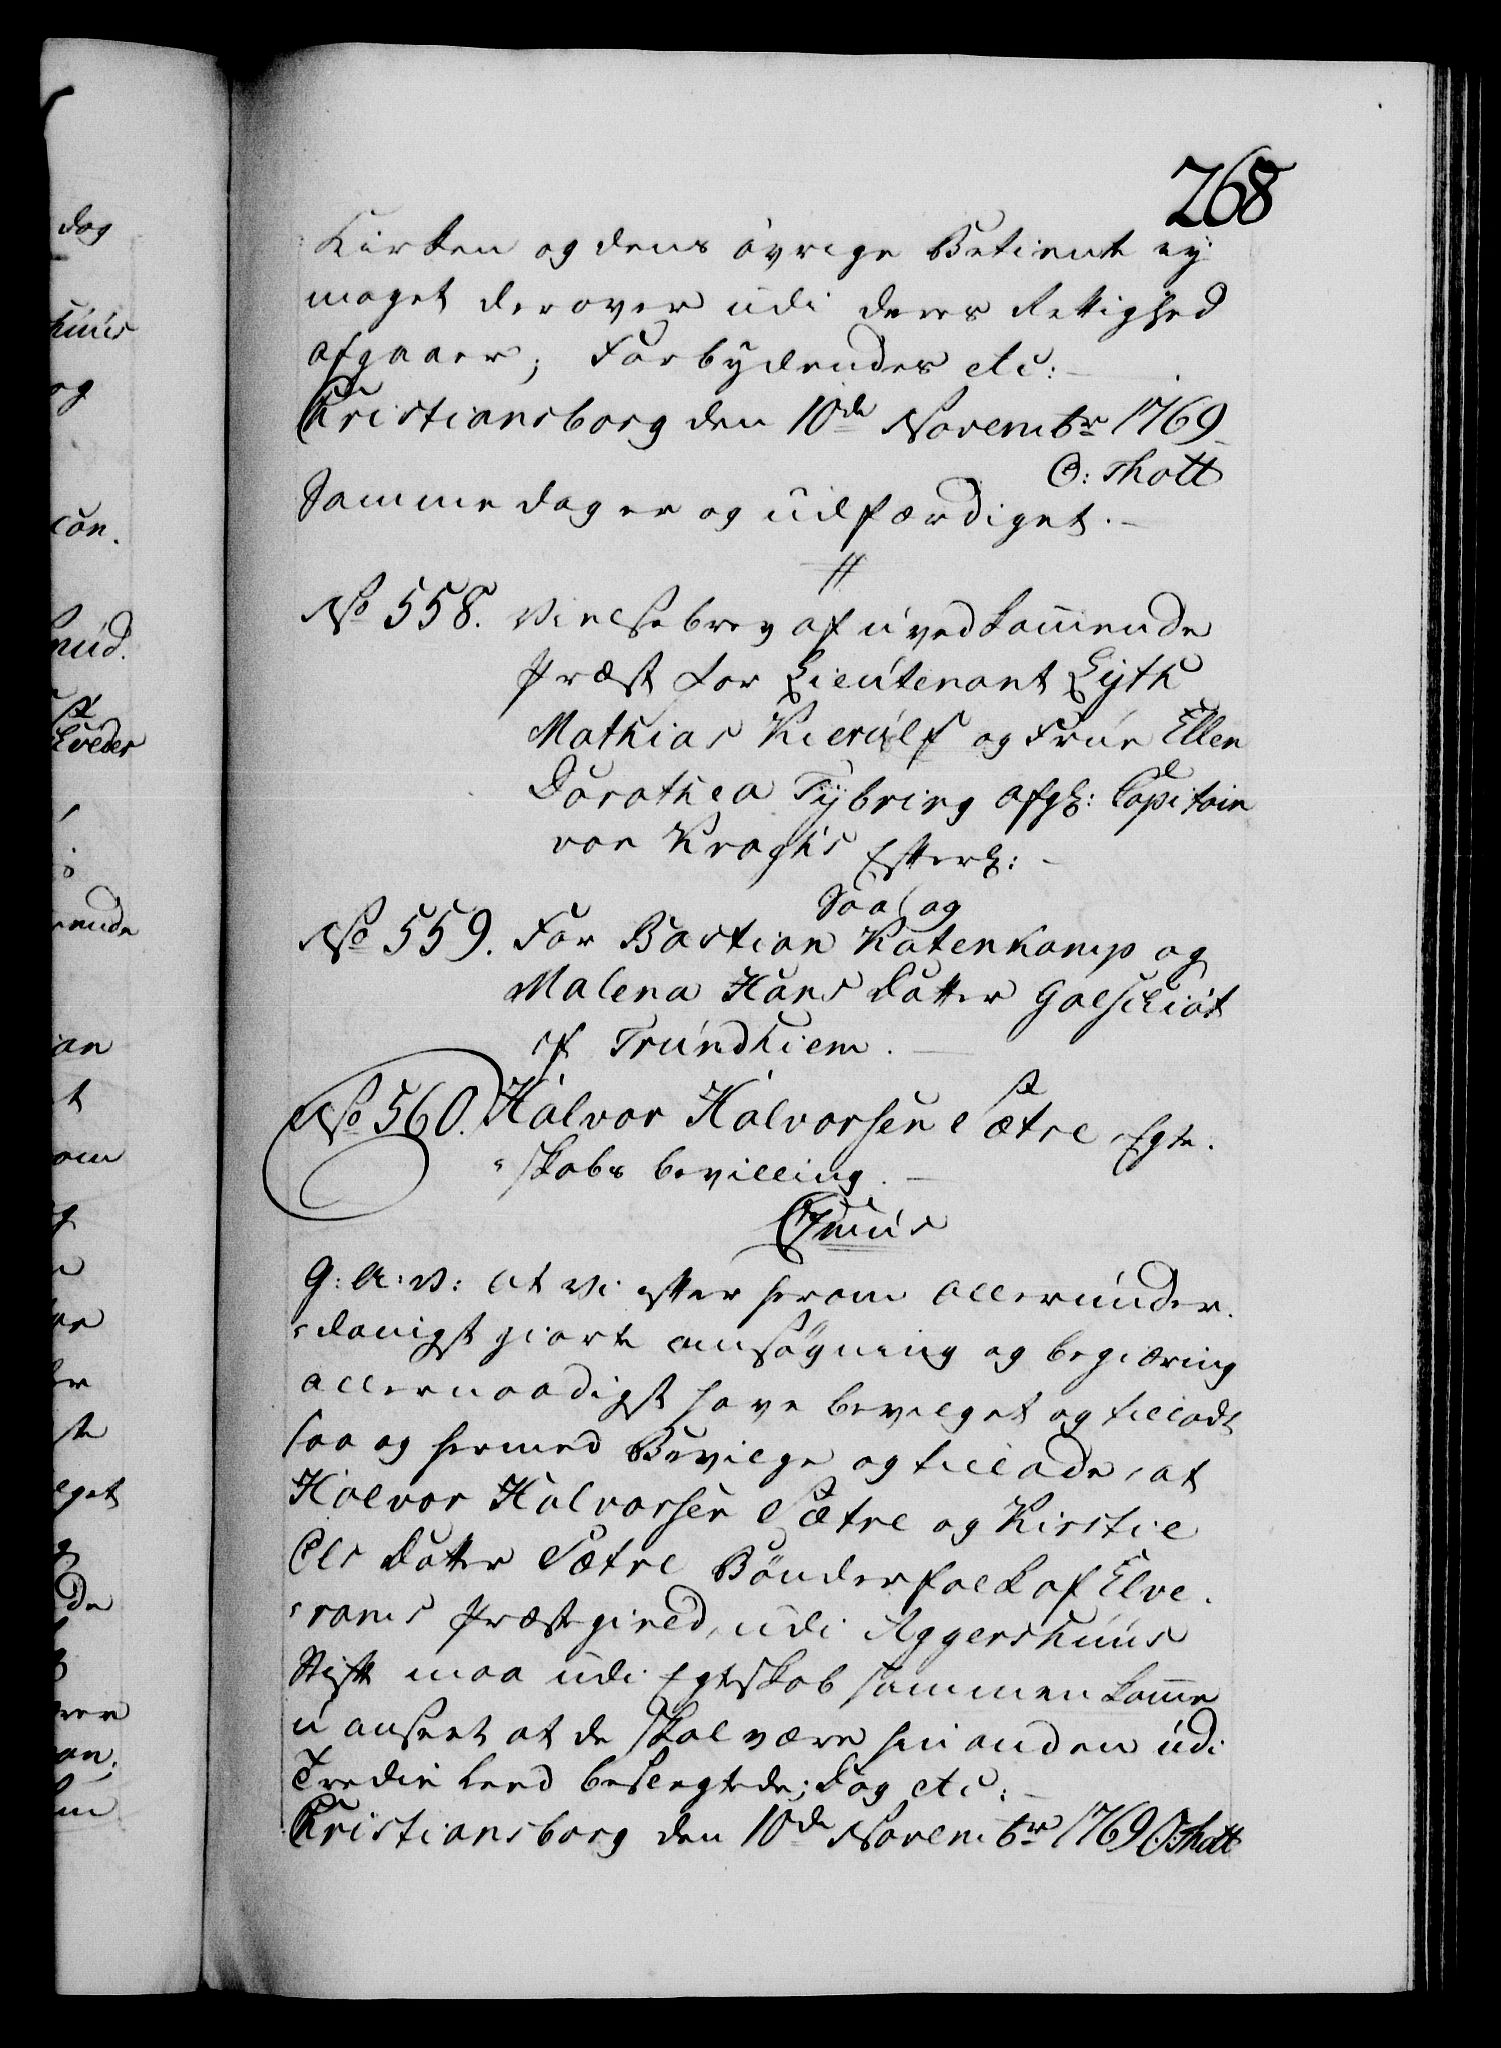 268
Kirken og dens øvrige Betiente ey
noget derover udi deres Rettighed
afgaaer; Forbydendes etc:
Christiansborg den 10de Novembr 1769
O: Thott
Samme dag er og udfærdiget.
No 558. Vielsebrev af uvedkommende
Præst for Lieutenant Eyth
Mathias Kierulf og Frue Ellen
Dorothea Tybring afg: Capitain
von Kroghs Efterl:
No 559. For Bastian Saal og Katenkamp og
Malena Hans Datter Galschiøt
af Trundhiem.
No 560. Halvor Halvorsen Sætre Egte-
skabs bevilling.
G: A: V: At Vi efter herom allerunder-
danigst giorte ansøgning og begiæring
allernaadigst have bevilget og tilladt
saa og hermed Bevilge og tillade, at
Halvor Halvorsen Sætre og Kirstie
Ols Datter Sætre Bønderfolk af Elve-
rams Præstegield, udi Aggershuus
Stift maa udi Egteskab sammenkomme
uanseet at de skal være hinanden udi
Tredie Leed beslegtede; Dog etc:
Christiansborg den 10de Novembr 1769 O: Thott
dag
huus
og
con.
mud.
Kveder
ende
ian
t
om
og
ste
lget
g
de